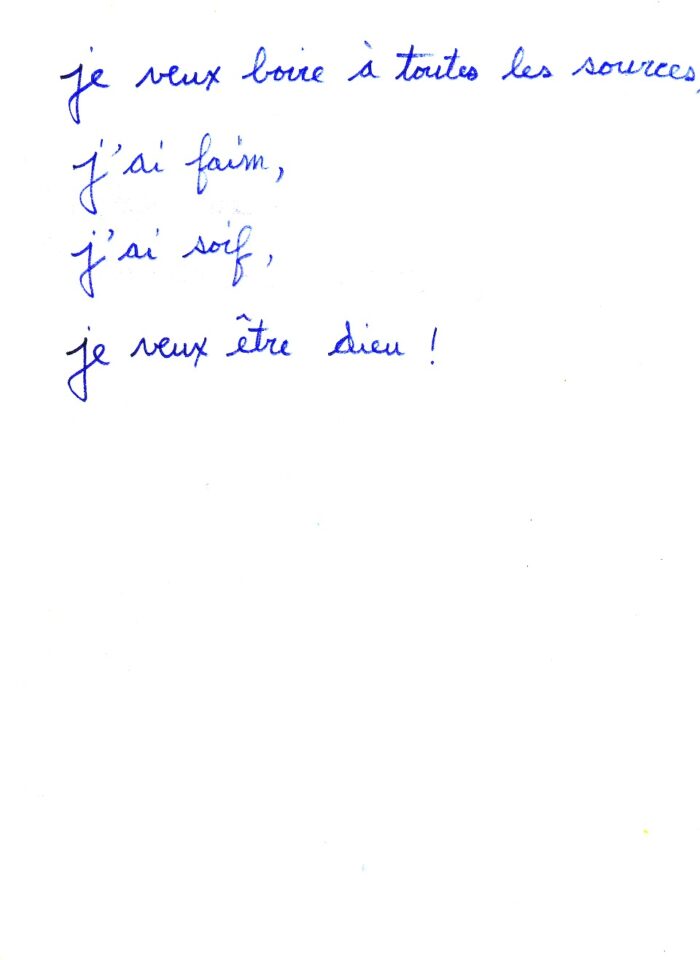 je veux boire à toutes les sources,
j'ai faim,
j'ai soif,
je veux être dieu !